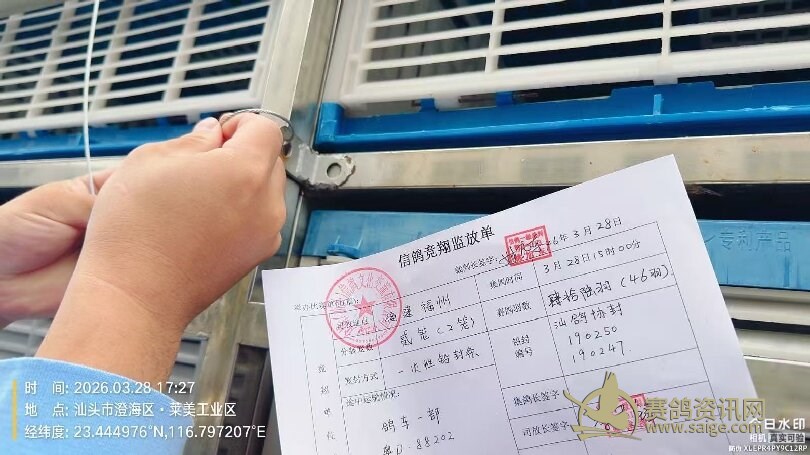 信鸽竞翔监放单
26年3月28日
福州
集鸽时间
3月28日15时00分
贰笼(2笼)
集鸽羽数
肆拾陆羽(46羽)
装封方式
一次性铅封条
铅封编号
汕鸽协封
190250
190247.
鸽车一部
粤D-88202
集鸽长签字
司放长签字
专利产品
时 间: 2026.03.28 17:27
地 点: 汕头市澄海区·莱美工业区
经纬度: 23.444976°N,116.797207°E
赛鸽资讯网
www.saige.com
今日水印
相机 真实可验
防伪 XLEPR4PY9C12RP